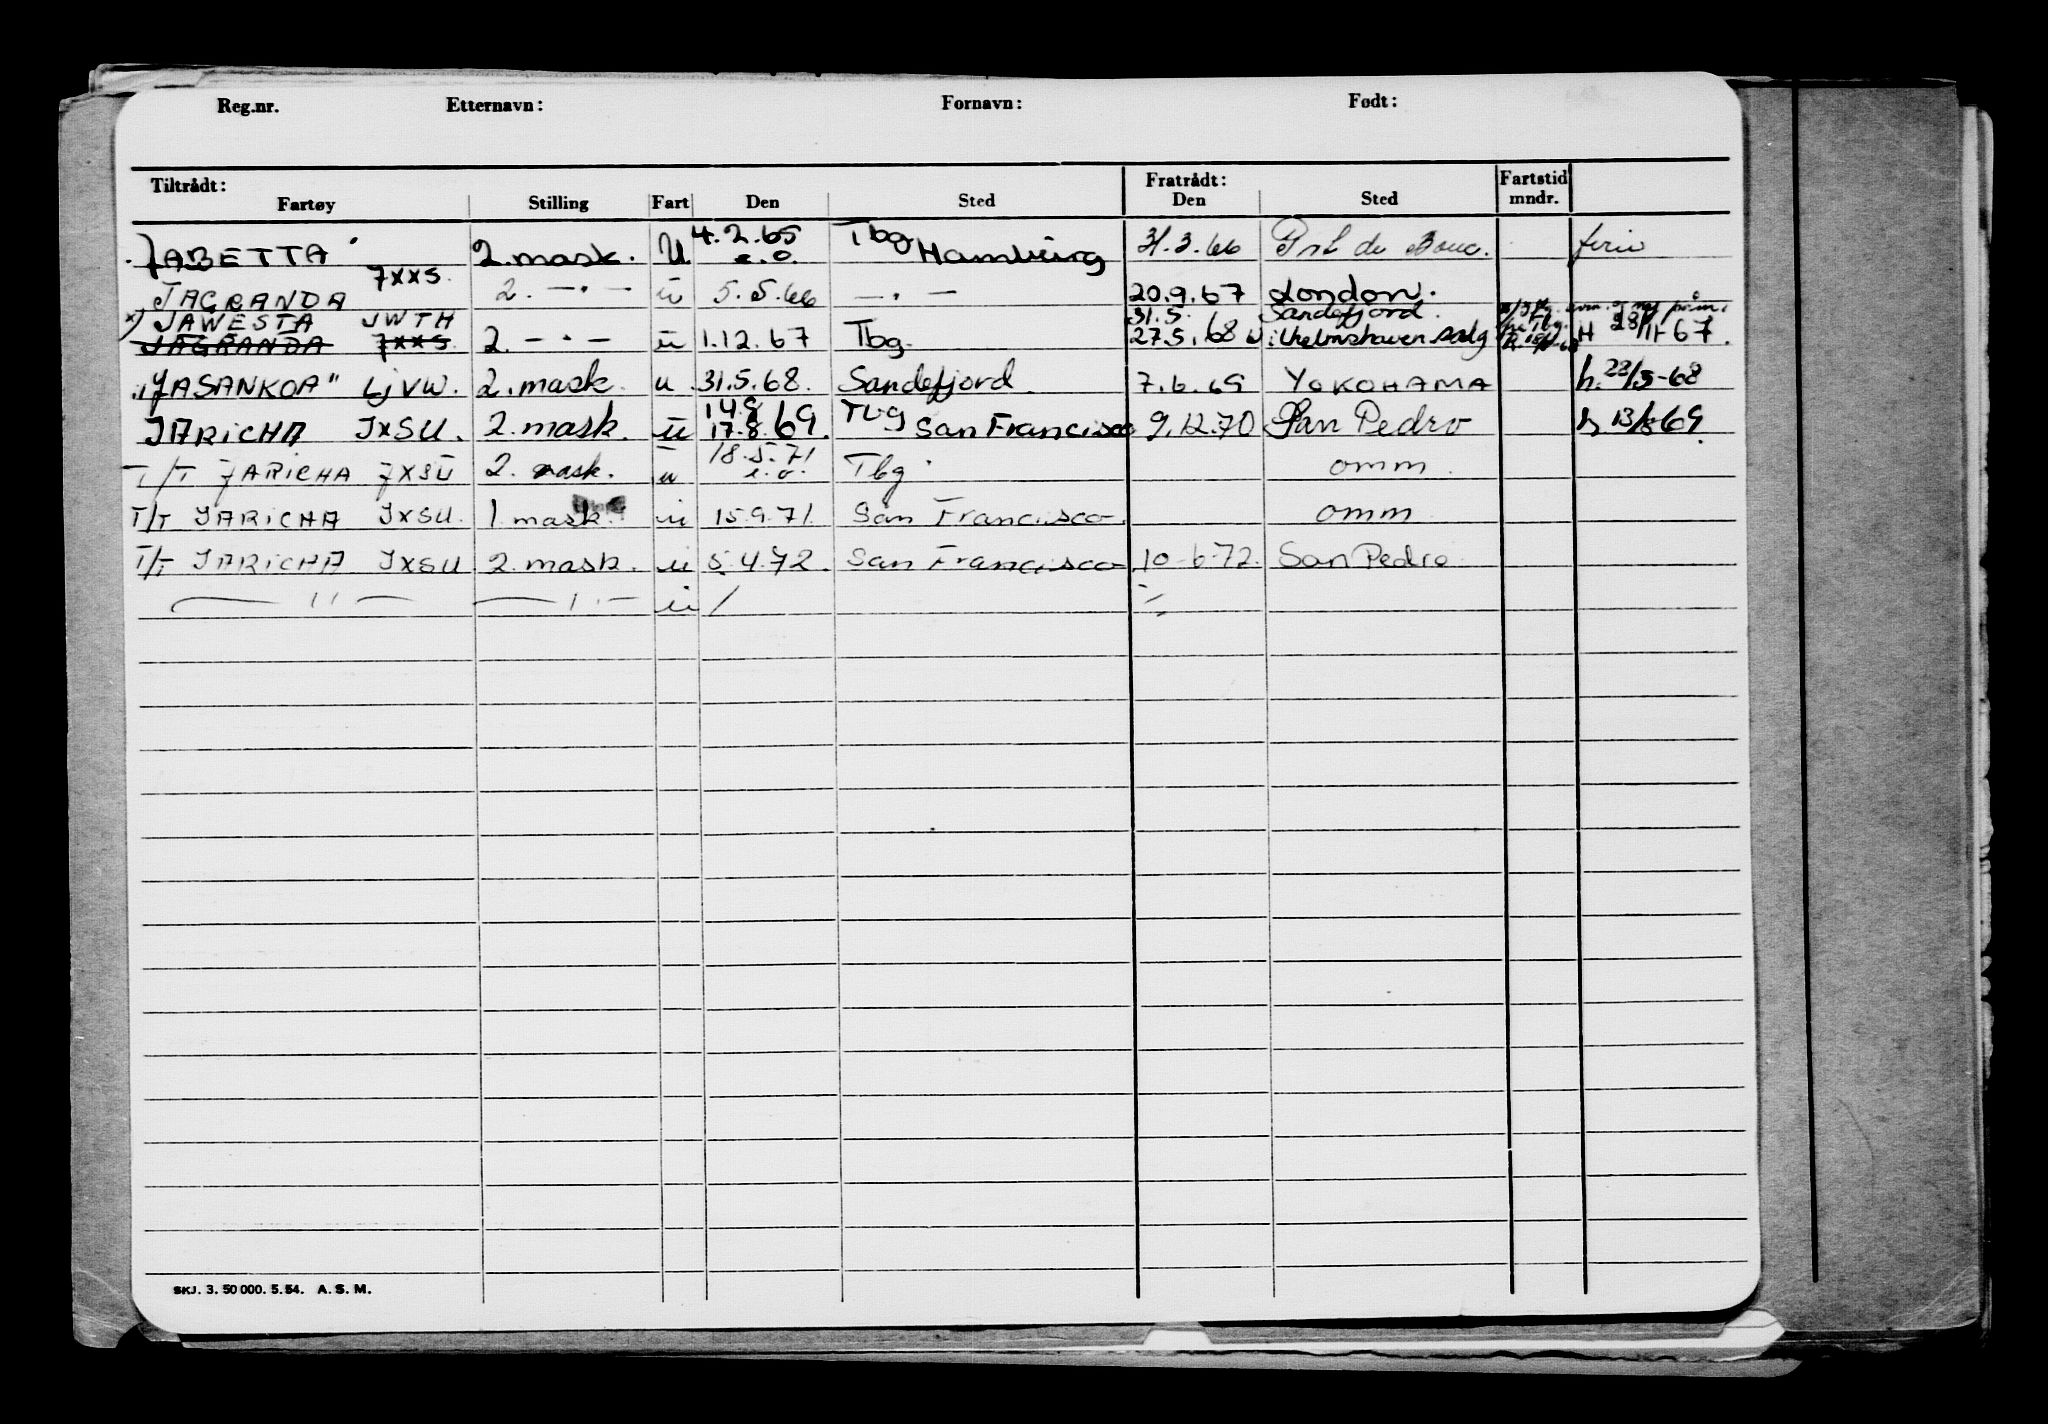 Reg.nr. Etternavn: Fornavn: Født:
Tiltrådt: Fratrådt: Fartstid
Fartøy Stilling Fart Den Sted Den Sted mndr.
JABETTA 2. mask. U 4.2.65 e.o. Tbg Hamburg 31.3.66 Port de Bouc. ferie
JAGRANDA 7XXS. 2. —"— u 5.5.66 —"— 20.9.67 London.
x) JAWESTA JWTH 31.5. Sandefjord.
JAGRANDA 7XXS. 2. —"— u 1.12.67 Tbg. 27.5.68 Wilhelmshaven salg H 28/11-67.
"JASANKOA" LJVW. 2. mask. u. 31.5.68. Sandefjord. 7.6.69 YOKOHAMA h. 22/5-68
JARICHA JXSU. 2. mask. u 14.8 17.8.69. Tbg San Francisco 9.12.70 San Pedro h 13/8 69.
T/T JARICHA JXSU 2. mask. u 18.5.71 e.o. Tbg omm.
T/T JARICHA JXSU. 1. mask. u 15.9.71. San Francisco omm
T/T JARICHA JXSU 2. mask. u 5.4.72. San Francisco 10-6-72. San Pedro.
— " — — " — u /
SKJ. 3. 50 000. 5. 54. A. S. M.